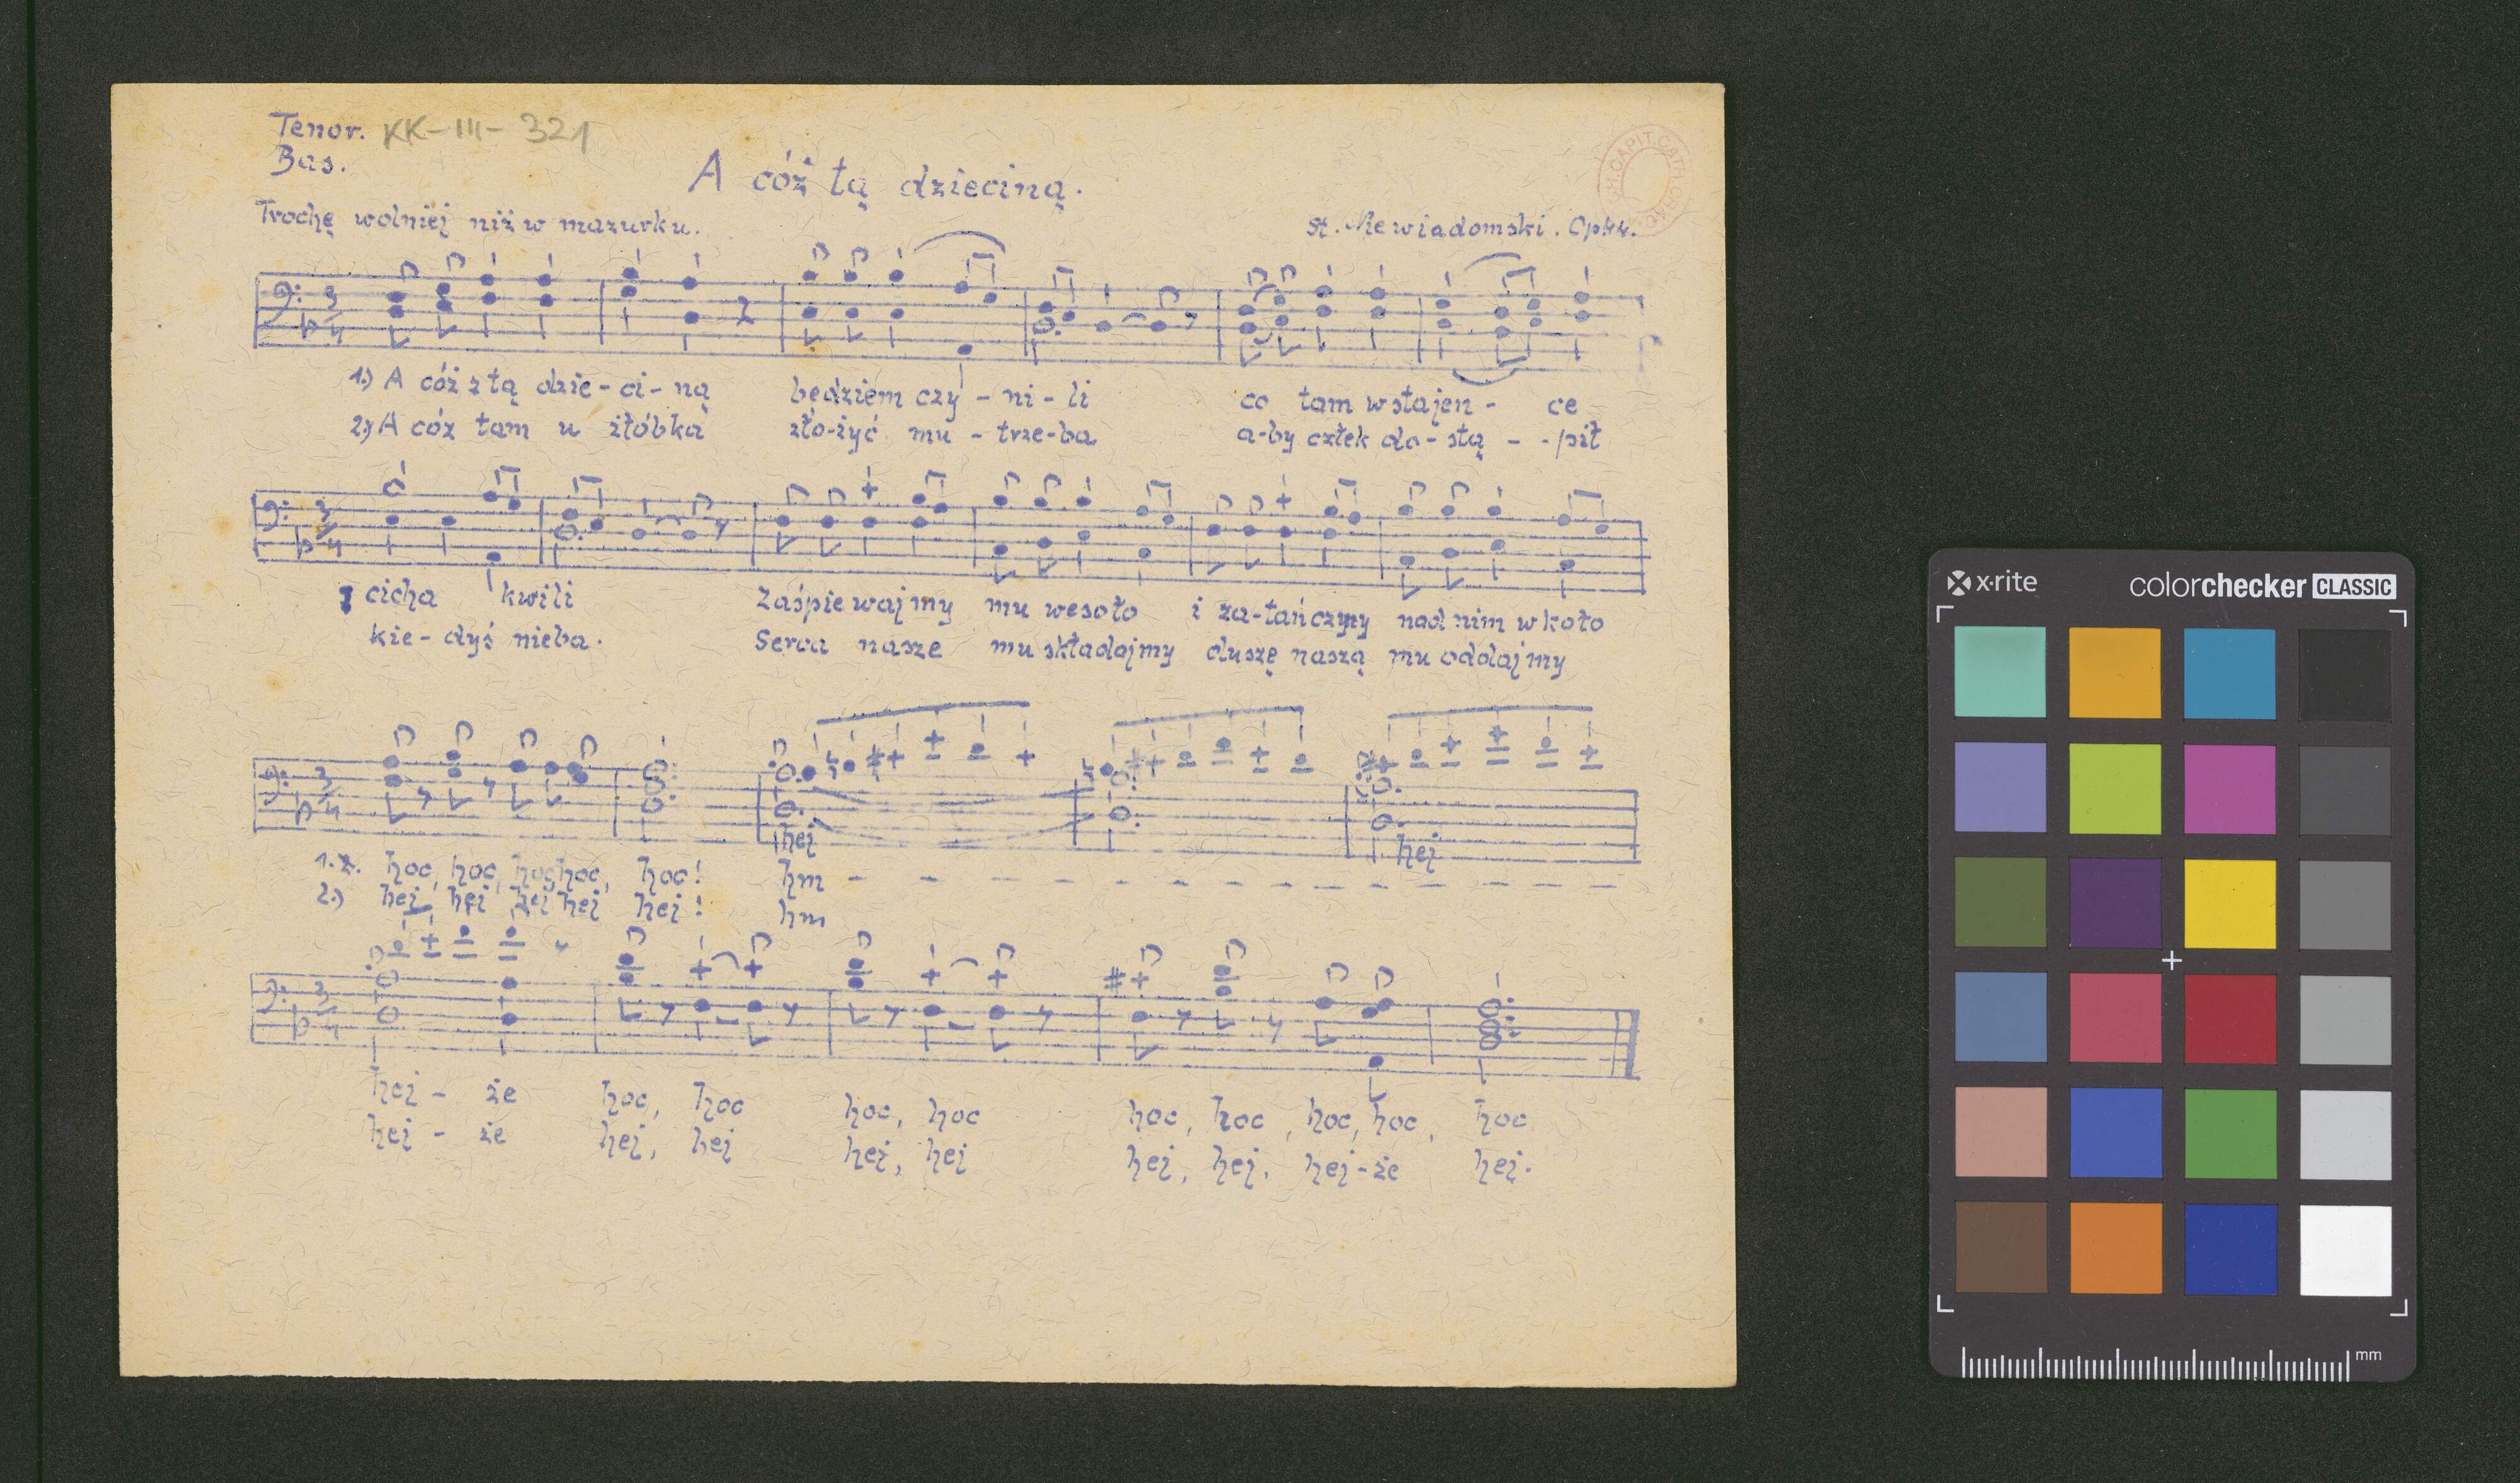 Tenor. KK-III-321
Bas.
A cóż tą dzieciną.
Trochę wolniej niż w mazurku.
St. Niewiadomski. Op44.
1.) A cóż z tą dzie-ci-ną będziem czy-ni-li co tam wstajen- ce
2.) A cóż tam u żłóbka zło-żyć mu-trze-ba a-by człek do-stą - -pił
cicha kwili Zaśpiewajmy mu wesoło i za-tańczmy nad nim wkoło
kie-dyś nieba. Serca nasze mu składajmy duszę naszą mu oddajmy
hej hej
1. hoc, hoc, hoc, hoc, hoc! hm - - - - - - - - - - - - - -
2.) hej, hej hej hej hej! hm
hej- że hoc, hoc hoc, hoc hoc, hoc, hoc, hoc, hoc
hej- że hej, hej hej, hej hej, hej, hej-że hej.
x·rite colorchecker CLASSIC
mm